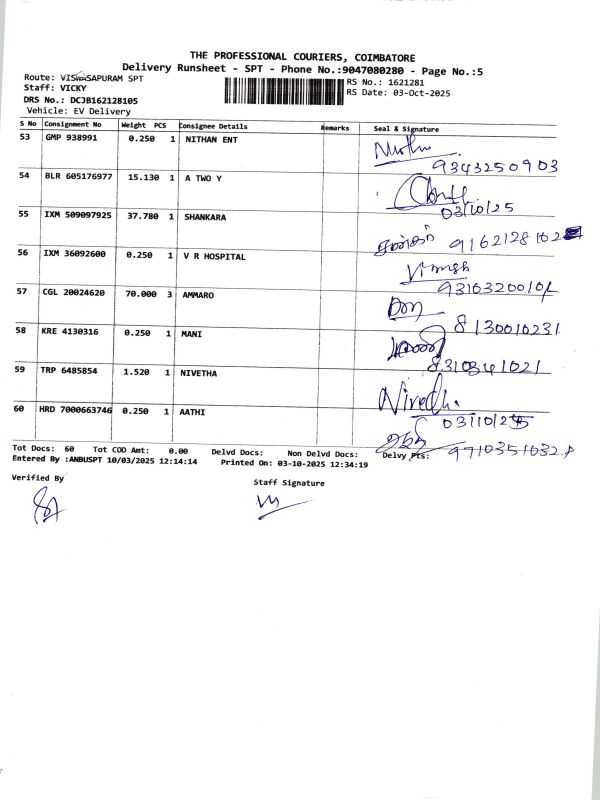 THE PROFESSIONAL COURIERS, COIMBATORE
Delivery Runsheet - SPT - Phone No.:9047080280 - Page No.:5
Route: VISWASAPURAM SPT
RS No.: 1621281
Staff: VICKY
RS Date: 03-Oct-2025
DRS No.: DCJB162128105
Vehicle: EV Delivery
S No Consignment No Weight PCS Consignee Details Remarks Seal & Signature
53 GMP 938991 0.250 1 NITHAN ENT
9343250903
54 BLR 605176977 15.130 1 A TWO Y
03/10/25
55 IXM 509097925 37.780 1 SHANKARA
சங்கர் 9162128102
56 IXM 36092600 0.250 1 V R HOSPITAL
57 CGL 20024620 70.000 3 AMMARO
8130010231
58 KRE 4130316 0.250 1 MANI
8310341021
59 TRP 6485854 1.520 1 NIVETHA
Nivedh.
03/10/25
60 HRD 7000663746 0.250 1 AATHI
9710351032
Tot Docs: 60 Tot COD Amt: 0.00 Delvd Docs: Non Delvd Docs: Delvy Pts:
Entered By :ANBUSPT 10/03/2025 12:14:14 Printed On: 03-10-2025 12:34:19
Verified By
Staff Signature